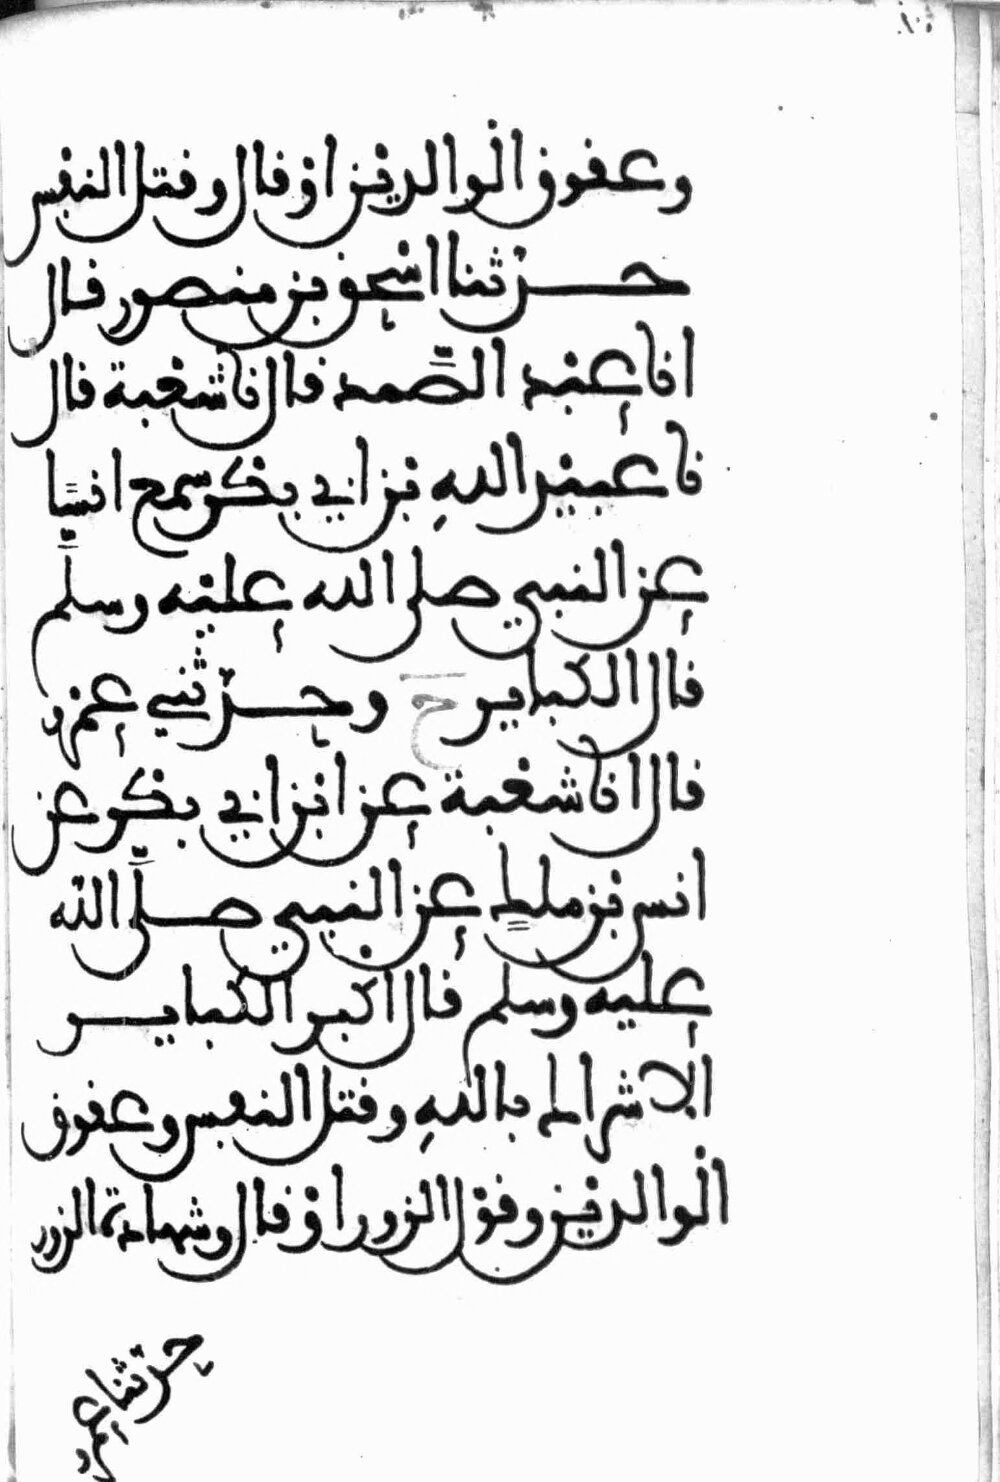 وعقوق الوالدين او قال وقتل النفس
حدثنا اسحق بن منصور قال
انا عبد الصمد قال نا شعبة قال
نا عبيد الله بن ابي بكر سمع انسا
عن النبي صلى الله عليه وسلم
قال الكباير ح وحدثني عمرو
قال انا شعبة عن ابن ابي بكر عن
انس بن ملك عن النبي صلى الله
عليه وسلم قال اكبر الكباير
الاشراك بالله وقتل النفس وعقوق
الوالدين وقول الزور او قال وشهادة الزور
حدثنا